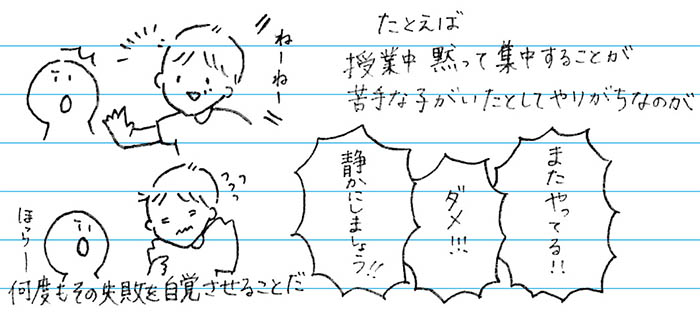 たとえば
授業中 黙って集中することが
苦手な子がいたとしてやりがちなのが
ねーねー
またやってる!!
ダメ!!!
静かにしましょう!!
ほらー
何度もその失敗を自覚させることだ